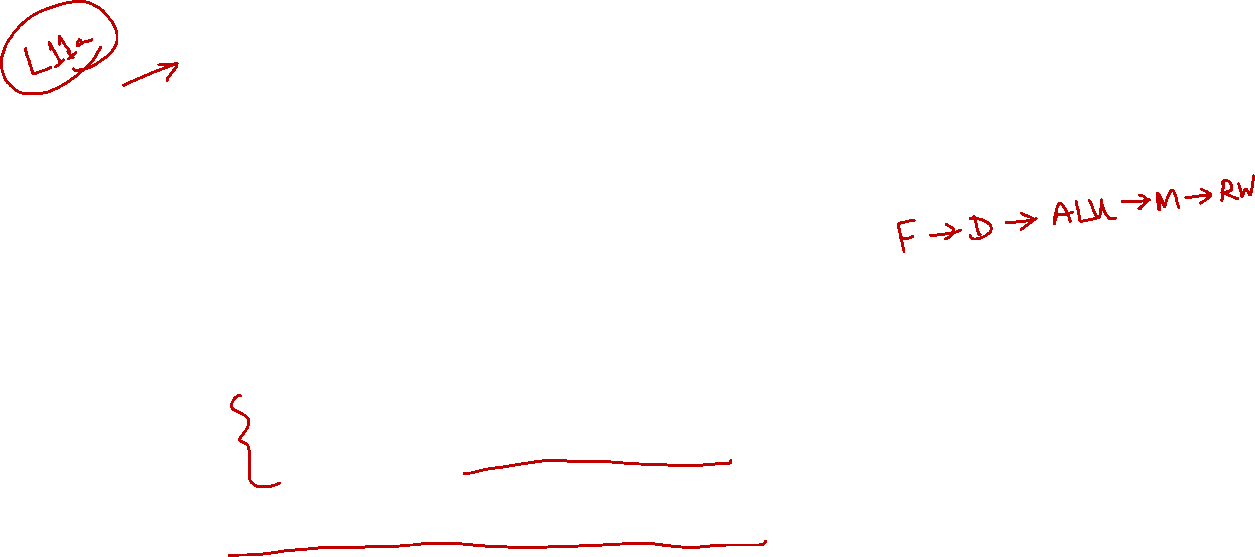 L11a
F → D → ALU → M → RW